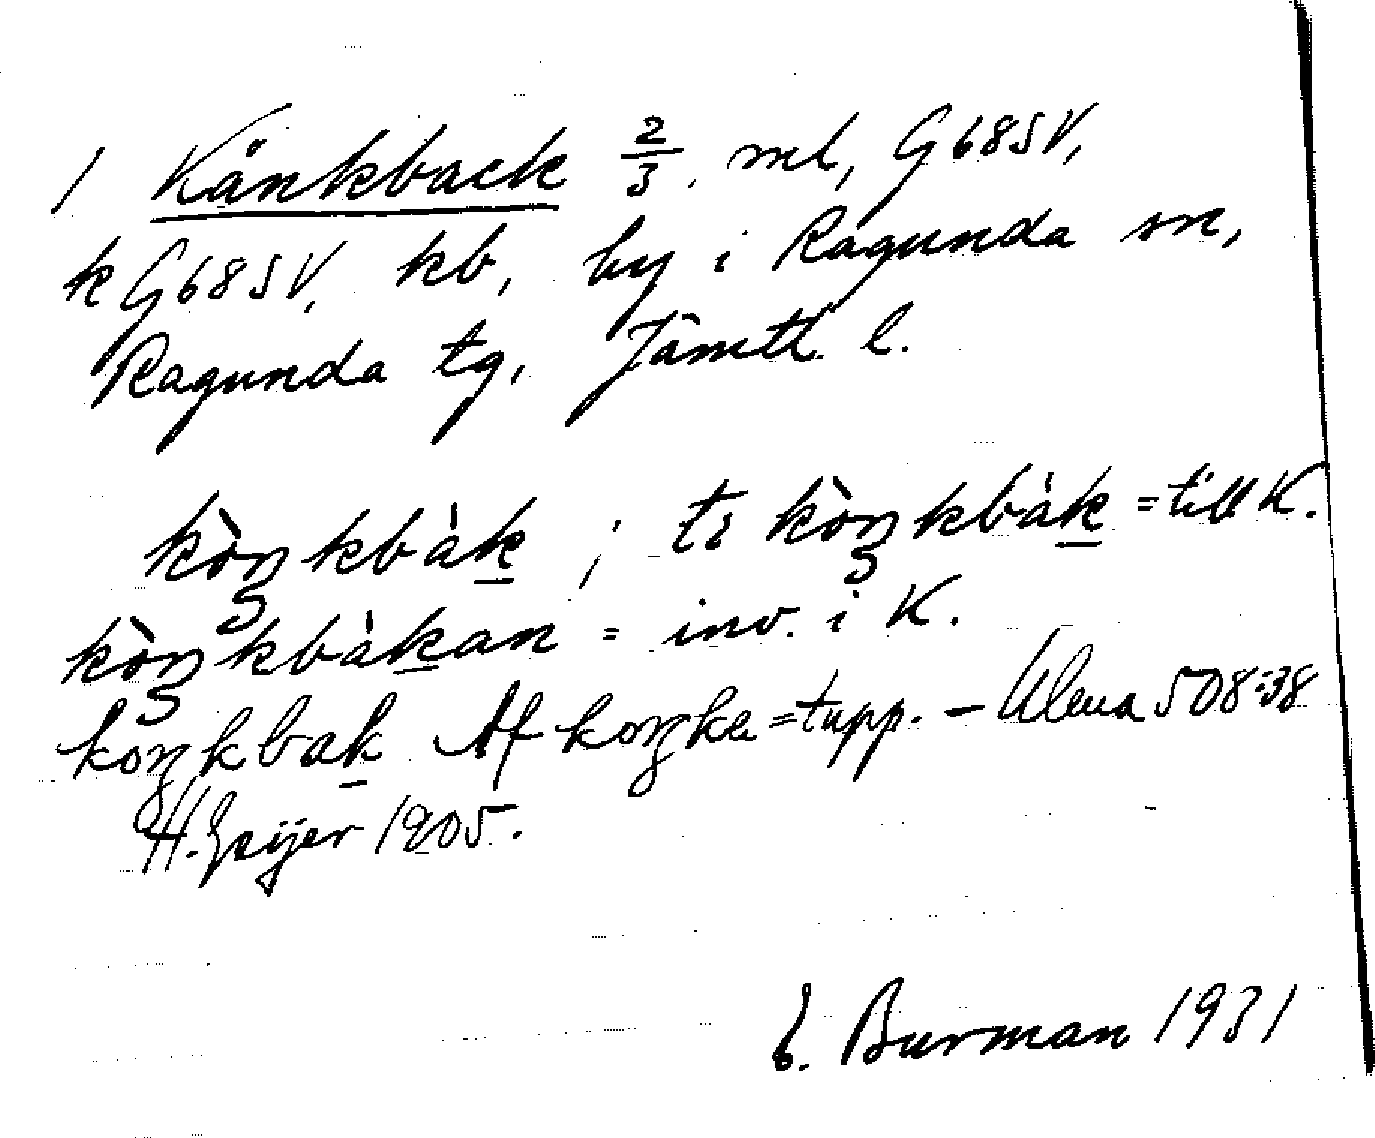 1 Känkback 2/3. ml, G68SV,
k G68SV, kb, by i Ragunda sn,
Ragunda tg, Jämtl. l.
kòŋkbàk ; ti kòŋkbàk = till K.
kòŋkbàkan = inv. i K.
koŋkbak Af koŋka = tupp. – Ulma 508:38
H. Geijer 1905.
E. Burman 1931